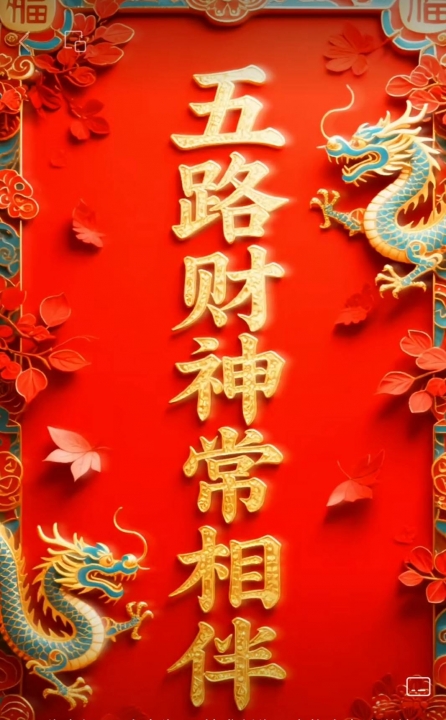 福
福
五路财神常相伴